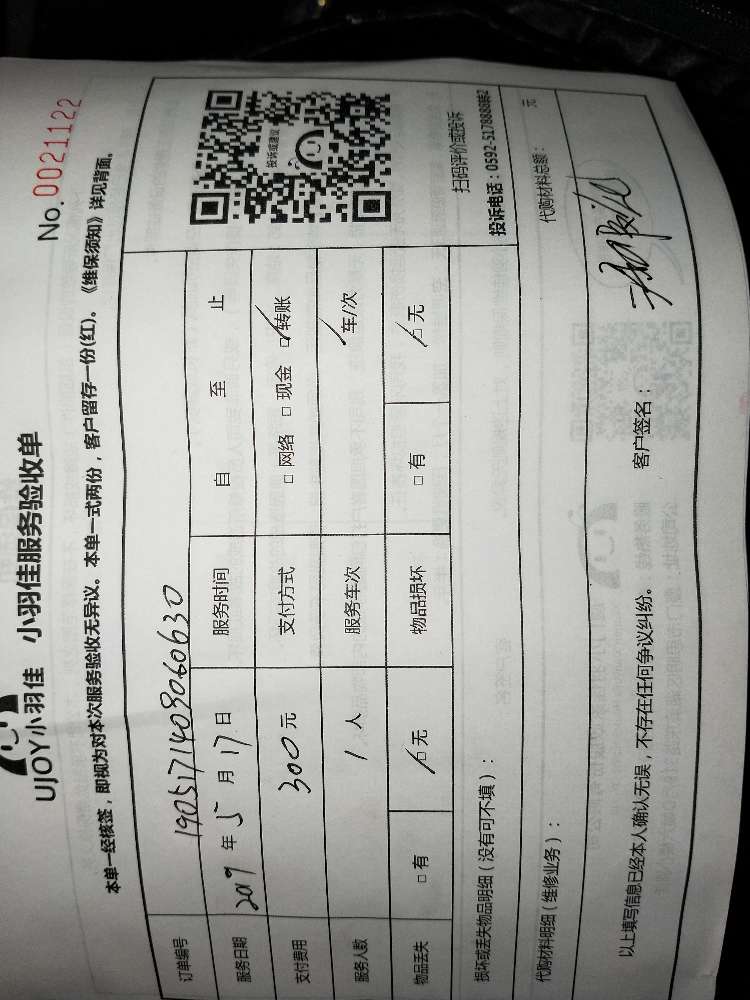 UJOY小羽佳 小羽佳服务验收单
No.0021122
本单一经核签，即视为对本次服务验收无异议。本单一式两份，客户留存一份(红)。《维保须知》详见背面。
订单编号 1905171408060630
服务日期 2019 年 5 月 17 日 服务时间 自 至 止
支付费用 300 元 支付方式 □ 网络 □ 现金 □ 转账
服务人数 1 人 服务车次 车/次
物品丢失 □ 有 □ 无 物品损坏 □ 有 □ 无
投诉或建议
扫码评价或投诉
投诉电话：0592-5178888转2
损坏或丢失物品明细（没有可不填）：
代购材料明细（维修业务）： 代购材料总额： 元
以上填写信息已经本人确认无误，不存在任何争议纠纷。 客户签名：